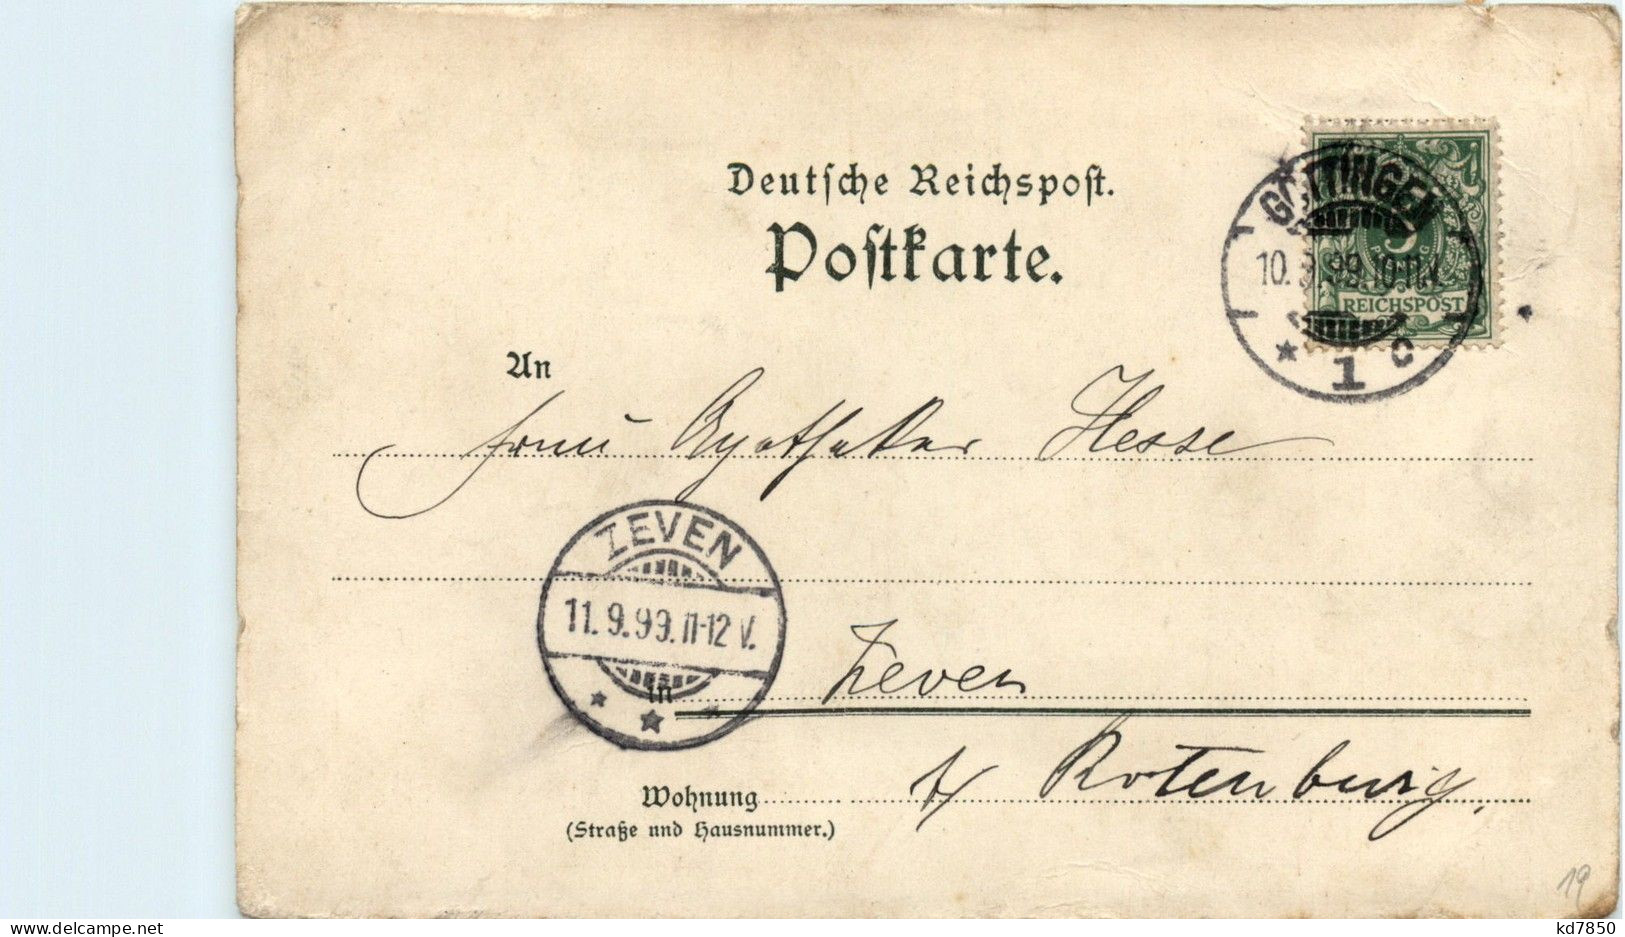 Deutsche Reichspost.
Postkarte.
GÖTTINGEN
10.9.99.10-11V.
* 1 c
5
PFENNIG
REICHSPOST
An
Frau Apotheker Hesse
ZEVEN
11.9.99.11-12 V.
in Zeven
Wohnung
(Straße und Hausnummer.)
b/ Rotenburg.
19
delcampe.net
kd7850